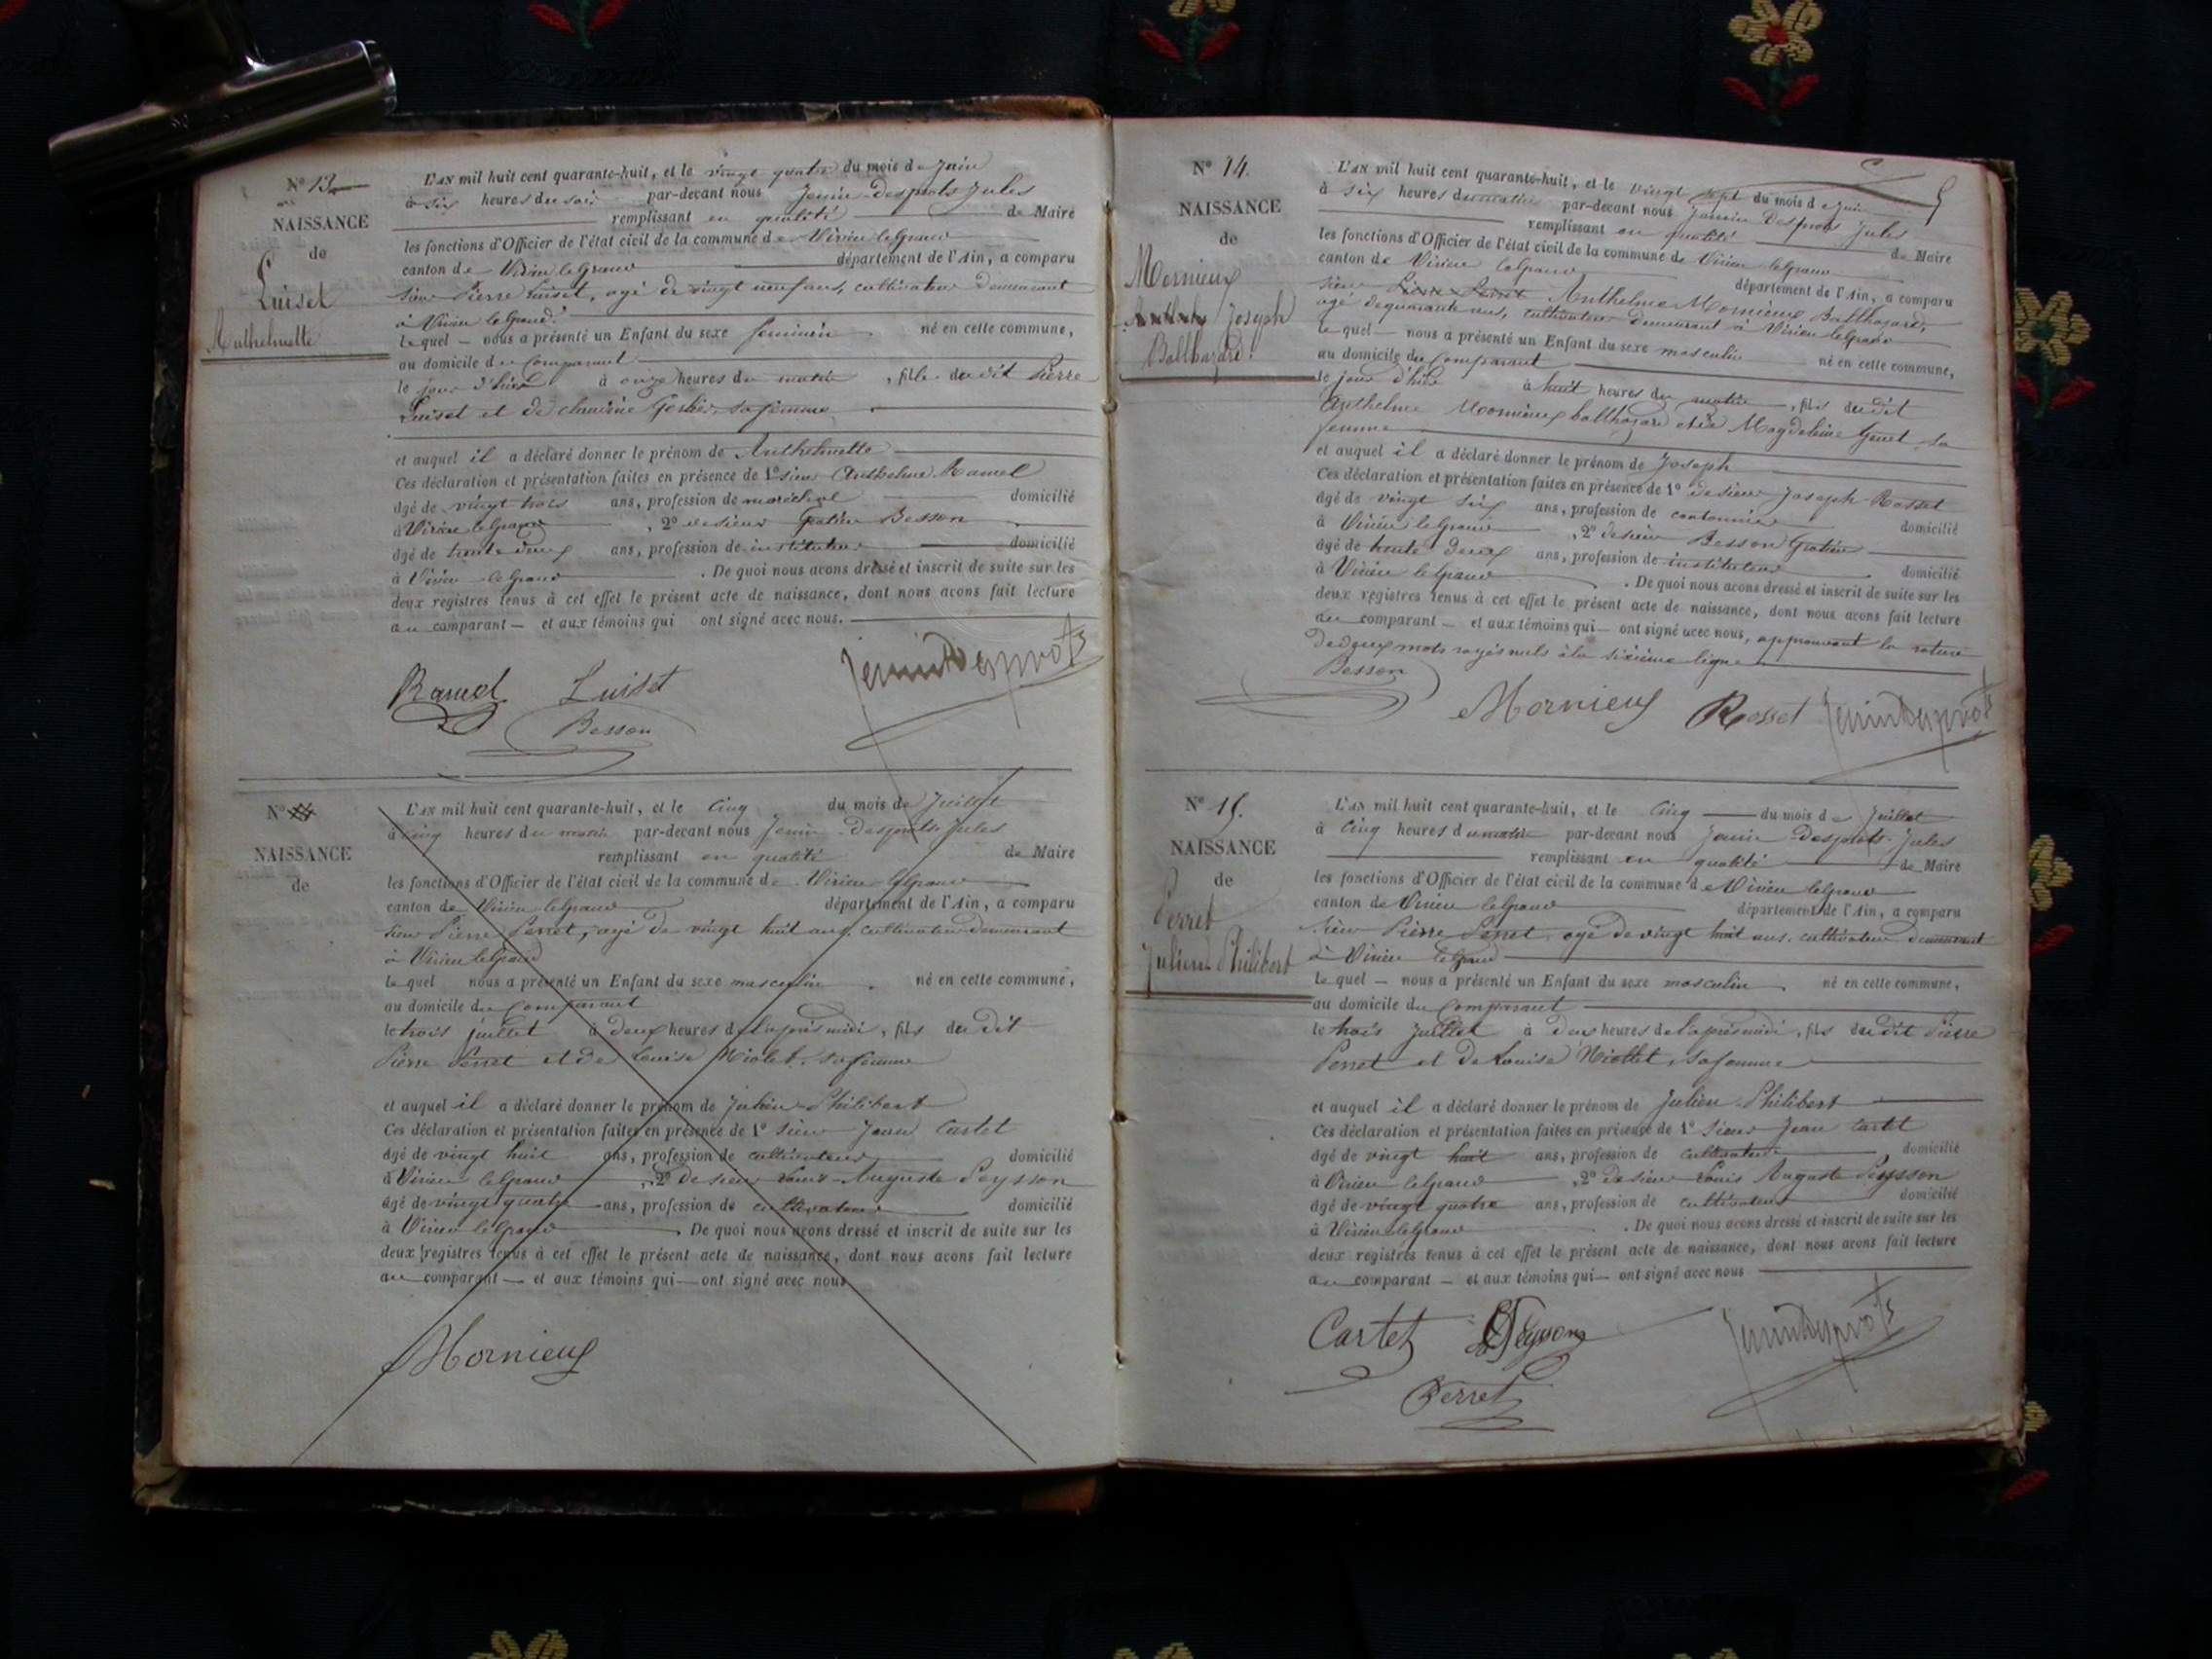 N° 13
NAISSANCE
de
Luiset
Anthelmette
L'AN mil huit cent quarante-huit, et le vingt quatre du mois de Juin
à six heures du soir par-devant nous Jenin-Desprots Jules
remplissant en qualité de Maire
les fonctions d'Officier de l'état civil de la commune de Virieu leGrand
canton de Virieu leGrand département de l'Ain, a comparu
Sieur Pierre Luiset, agé de vingt neuf ans, cultivateur demeurant
à Virieu leGrand
lequel nous a présenté un Enfant du sexe féminin né en cette commune,
au domicile du Comparant
le jour d'hier à onze heures du matin, fille dudit Pierre
Luiset et de sa femme
et auquel il a déclaré donner le prénom de Anthelmette
Ces déclaration et présentation faites en présence de 1° sieur Anthelme Ramel
âgé de vingt trois ans, profession de maréchal domicilié
à Virieu leGrand, 2° de sieur Gratien Besson
âgé de trente deux ans, profession de instituteur domicilié
à Virieu leGrand. De quoi nous avons dressé et inscrit de suite sur les
deux registres tenus à cet effet le présent acte de naissance, dont nous avons fait lecture
au comparant et aux témoins qui ont signé avec nous.
Ramel Luiset Jenin Desprots
Besson
N°
NAISSANCE
de
L'AN mil huit cent quarante-huit, et le Cinq du mois de Juillet
à cinq heures du matin par-devant nous Jenin-Desprots Jules
remplissant en qualité de Maire
les fonctions d'Officier de l'état civil de la commune de Virieu leGrand
canton de Virieu leGrand département de l'Ain, a comparu
Sieur Pierre Perret, agé de vingt huit ans, cultivateur demeurant
à Virieu leGrand
lequel nous a présenté un Enfant du sexe masculin né en cette commune,
au domicile du Comparant
le trois juillet à deux heures de l'après midi, fils dudit
Pierre Perret et de Louise Miolet, sa femme
et auquel il a déclaré donner le prénom de Julien-Philibert
Ces déclaration et présentation faites en présence de 1° sieur Jean Cartet
âgé de vingt huit ans, profession de cultivateur domicilié
à Virieu leGrand, 2° de sieur Louis-Auguste Peysson
âgé de vingt quatre ans, profession de cultivateur domicilié
à Virieu leGrand. De quoi nous avons dressé et inscrit de suite sur les
deux registres tenus à cet effet le présent acte de naissance, dont nous avons fait lecture
au comparant et aux témoins qui ont signé avec nous
Mornieux
N° 14.
NAISSANCE
de
Mornieux
Joseph
Balthazard
L'AN mil huit cent quarante-huit, et le vingt sept du mois de Juin
à six heures du matin par-devant nous Jenin Desprots Jules
remplissant en qualité de Maire
les fonctions d'Officier de l'état civil de la commune de Virieu leGrand
canton de Virieu leGrand département de l'Ain, a comparu
sieur Pierre Perret Anthelme Mornieux Balthazard,
agé de quarante ans, cultivateur demeurant à Virieu leGrand
lequel nous a présenté un Enfant du sexe masculin né en cette commune,
au domicile du Comparant
le jour d'hier à huit heures du matin, fils dudit
Anthelme Mornieux balthazard et de Magdeleine Genet sa
femme
et auquel il a déclaré donner le prénom de Joseph
Ces déclaration et présentation faites en présence de 1° de sieur Joseph Rosset
âgé de vingt six ans, profession de cantonnier domicilié
à Virieu leGrand, 2° de sieur Besson Gratien
âgé de trente deux ans, profession de instituteur domicilié
à Virieu leGrand. De quoi nous avons dressé et inscrit de suite sur les
deux registres tenus à cet effet le présent acte de naissance, dont nous avons fait lecture
au comparant et aux témoins qui ont signé avec nous, approuvant la rature
de deux mots rayés nuls à la sixième ligne
Besson
Mornieux Rosset Jenin Desprots
N° 15.
NAISSANCE
de
Perret
Julien Philibert
L'AN mil huit cent quarante-huit, et le Cinq du mois de Juillet
à Cinq heures du matin par-devant nous Jenin Desprots-Jules
remplissant en qualité de Maire
les fonctions d'Officier de l'état civil de la commune de Virieu leGrand
canton de Virieu leGrand département de l'Ain, a comparu
Sieur Pierre Perret, agé de vingt huit ans, cultivateur demeurant
à Virieu leGrand
lequel nous a présenté un Enfant du sexe masculin né en cette commune,
au domicile du Comparant
le trois juillet à deux heures de l'après midi, fils dudit Pierre
Perret et de Louise Miollet, sa femme
et auquel il a déclaré donner le prénom de Julien-Philibert
Ces déclaration et présentation faites en présence de 1° Sieur Jean Cartet
âgé de vingt huit ans, profession de cultivateur domicilié
à Virieu leGrand, 2° de sieur Louis Auguste Peysson
âgé de vingt quatre ans, profession de cultivateur domicilié
à Virieu leGrand. De quoi nous avons dressé et inscrit de suite sur les
deux registres tenus à cet effet le présent acte de naissance, dont nous avons fait lecture
au comparant et aux témoins qui ont signé avec nous
Cartet Peysson Jenin Desprots
Perret